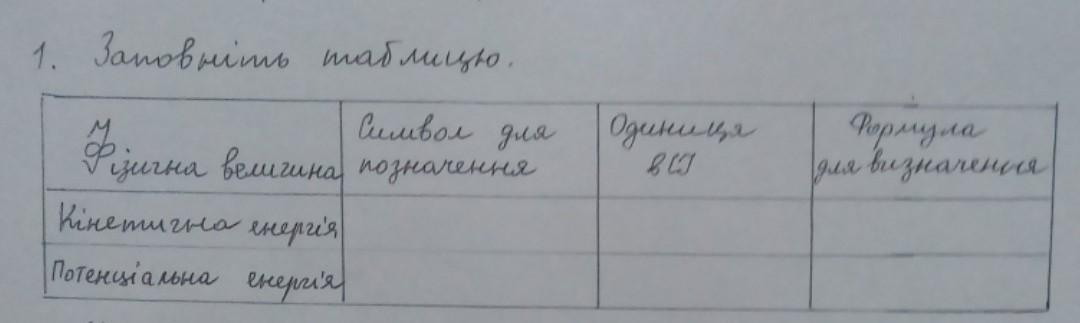 1. Заповніть таблицю.
Фізична величина
Символ для
позначення
Одиниця
в СІ
Формула
для визначення
Кінетична енергія
Потенціальна енергія